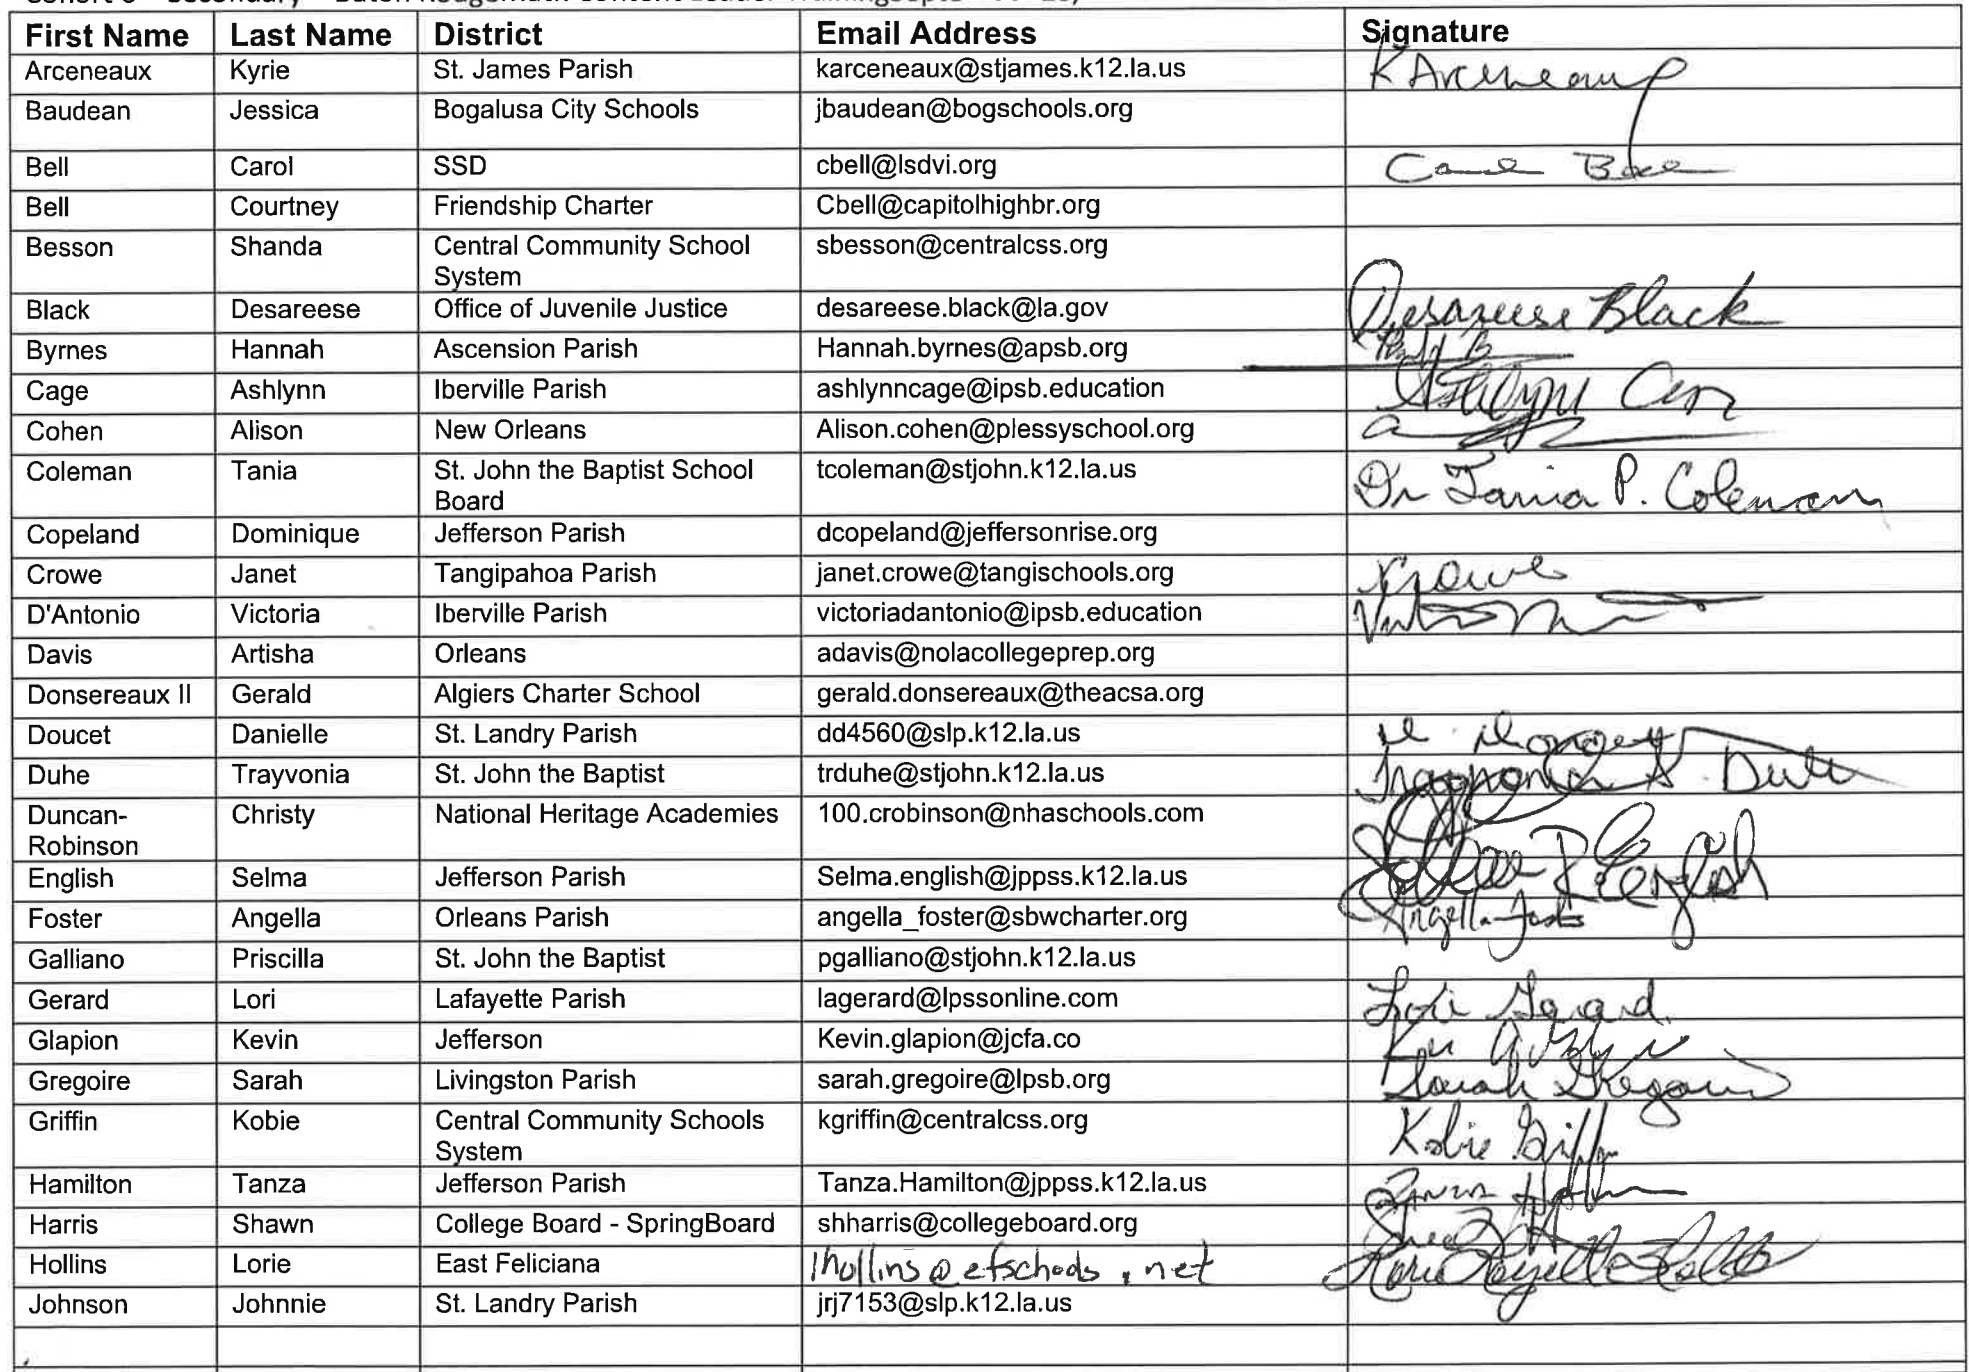 First Name Last Name District Email Address Signature
Arceneaux Kyrie St. James Parish karceneaux@stjames.k12.la.us K Arceneaux
Baudean Jessica Bogalusa City Schools jbaudean@bogschools.org
Bell Carol SSD cbell@lsdvi.org Carol Bell
Bell Courtney Friendship Charter Cbell@capitolhighbr.org
Besson Shanda Central Community School sbesson@centralcss.org
System
Black Desareese Office of Juvenile Justice desareese.black@la.gov Desareese Black
Byrnes Hannah Ascension Parish Hannah.byrnes@apsb.org
Cage Ashlynn Iberville Parish ashlynncage@ipsb.education Ashlynn
Cohen Alison New Orleans Alison.cohen@plessyschool.org
Coleman Tania St. John the Baptist School tcoleman@stjohn.k12.la.us Dr Tania P. Coleman
Board
Copeland Dominique Jefferson Parish dcopeland@jeffersonrise.org
Crowe Janet Tangipahoa Parish janet.crowe@tangischools.org Crowe
D'Antonio Victoria Iberville Parish victoriadantonio@ipsb.education
Davis Artisha Orleans adavis@nolacollegeprep.org
Donsereaux II Gerald Algiers Charter School gerald.donsereaux@theacsa.org
Doucet Danielle St. Landry Parish dd4560@slp.k12.la.us
Duhe Trayvonia St. John the Baptist trduhe@stjohn.k12.la.us Trayvonia S. Duhe
Duncan- Christy National Heritage Academies 100.crobinson@nhaschools.com
Robinson
English Selma Jefferson Parish Selma.english@jppss.k12.la.us Selma R English
Foster Angella Orleans Parish angella_foster@sbwcharter.org Angella Foster
Galliano Priscilla St. John the Baptist pgalliano@stjohn.k12.la.us
Gerard Lori Lafayette Parish lagerard@lpssonline.com Lori Gerard
Glapion Kevin Jefferson Kevin.glapion@jcfa.co
Gregoire Sarah Livingston Parish sarah.gregoire@lpsb.org Sarah Gregoire
Griffin Kobie Central Community Schools kgriffin@centralcss.org Kobie Griffin
System
Hamilton Tanza Jefferson Parish Tanza.Hamilton@jppss.k12.la.us Tanza
Harris Shawn College Board - SpringBoard shharris@collegeboard.org
Hollins Lorie East Feliciana lhollins@efschools.net
Johnson Johnnie St. Landry Parish jrj7153@slp.k12.la.us